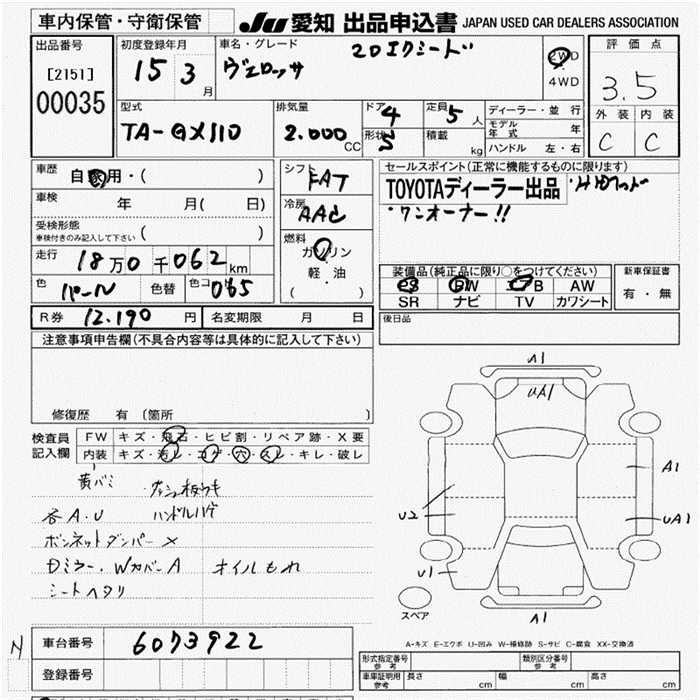 車内保管・守衛保管
JU 愛知 出品申込書 JAPAN USED CAR DEALERS ASSOCIATION
出品番号
[2151]
00035
初度登録年月
15 3 月
車名・グレード
ヴェロッサ
20エクシード
2WD
・
4WD
評価点
3.5
外装 内装
C C
型式
TA-GX110
排気量
2.000 CC
ドア 4
形状 5
定員 5 人
積載 kg
ディーラー・並行
モデル年式 年
ハンドル 左・右
車歴
自家用・( )
車検 年 月( 日)
受検形態
車検付きのみ記入して下さい ( )
走行 18万0千062km
色 パール 色替 色コ 065
シフト FAT
冷房 AAC
燃料
ガソリン
軽・油
( )
セールスポイント(正常に機能するものに限ります)
TOYOTAディーラー出品
・ワンオーナー!!
装備品(純正品に限り○をつけてください)
PS PW エアB AW
SR ナビ TV カワシート
新車保証書
有・無
R券 12.190 円 名変期限 月 日
後日品
注意事項申告欄(不具合内容等は具体的に記入して下さい)
修復歴 有 〔箇所 〕
検査員記入欄
FW キズ・飛石・ヒビ割・リペア跡・X要
内装 キズ・汚レ・コゲ・穴・スレ・キレ・破レ
各A.U ハンドルハゲ
ボンネットダンパー×
Dミラー.WカバーA オイルもれ
シートヘタリ
A1
UA1
A1
U2
UA1
U1
A1
スペア
A-キズ E-エクボ U-凹み W-補修跡 S-サビ C-腐食 XX-交換済
N
車台番号 6073922
登録番号
形式指定番号 参考
類別区分番号 参考
車庫証明用 参考 長さ cm 幅 cm 高さ cm